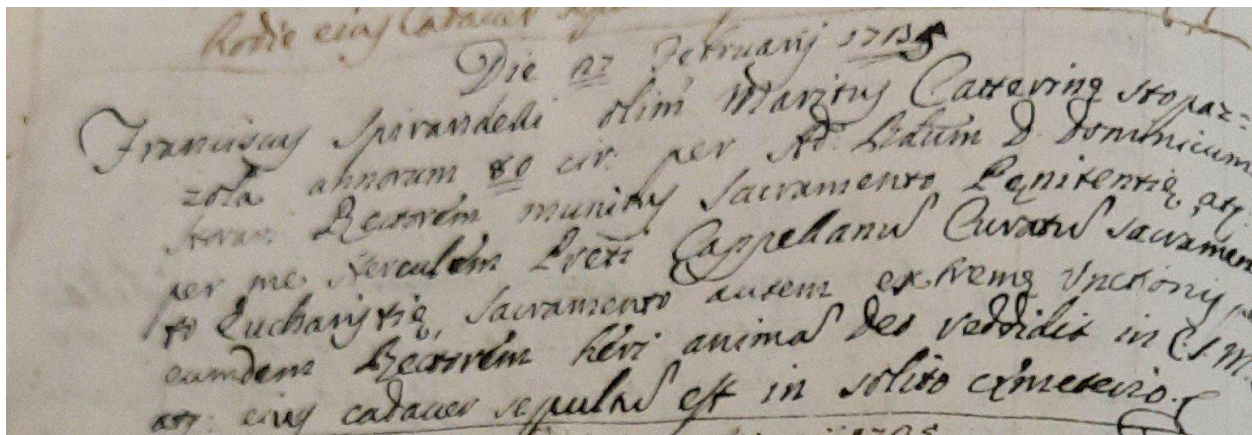 Hodie eius Cadaver
Die 27 Februarij 1735
Franciscus Spirandelli olim Maritus Catterinę Stopaz=
zola annorum 80 cir: per Ad: Rdum D. Dominicum
Rectorem munitus Sacramento Pęnitentię, atq
per me Herculem Preti Cappellanū Curatū Sacramen
to Eucharistię, Sacramento autem extremę Unctionis
eumdem Rectorem heri animā Deo reddidit in C.S.M.
atq: eius cadaver sepultū est in solito cęmeterio.